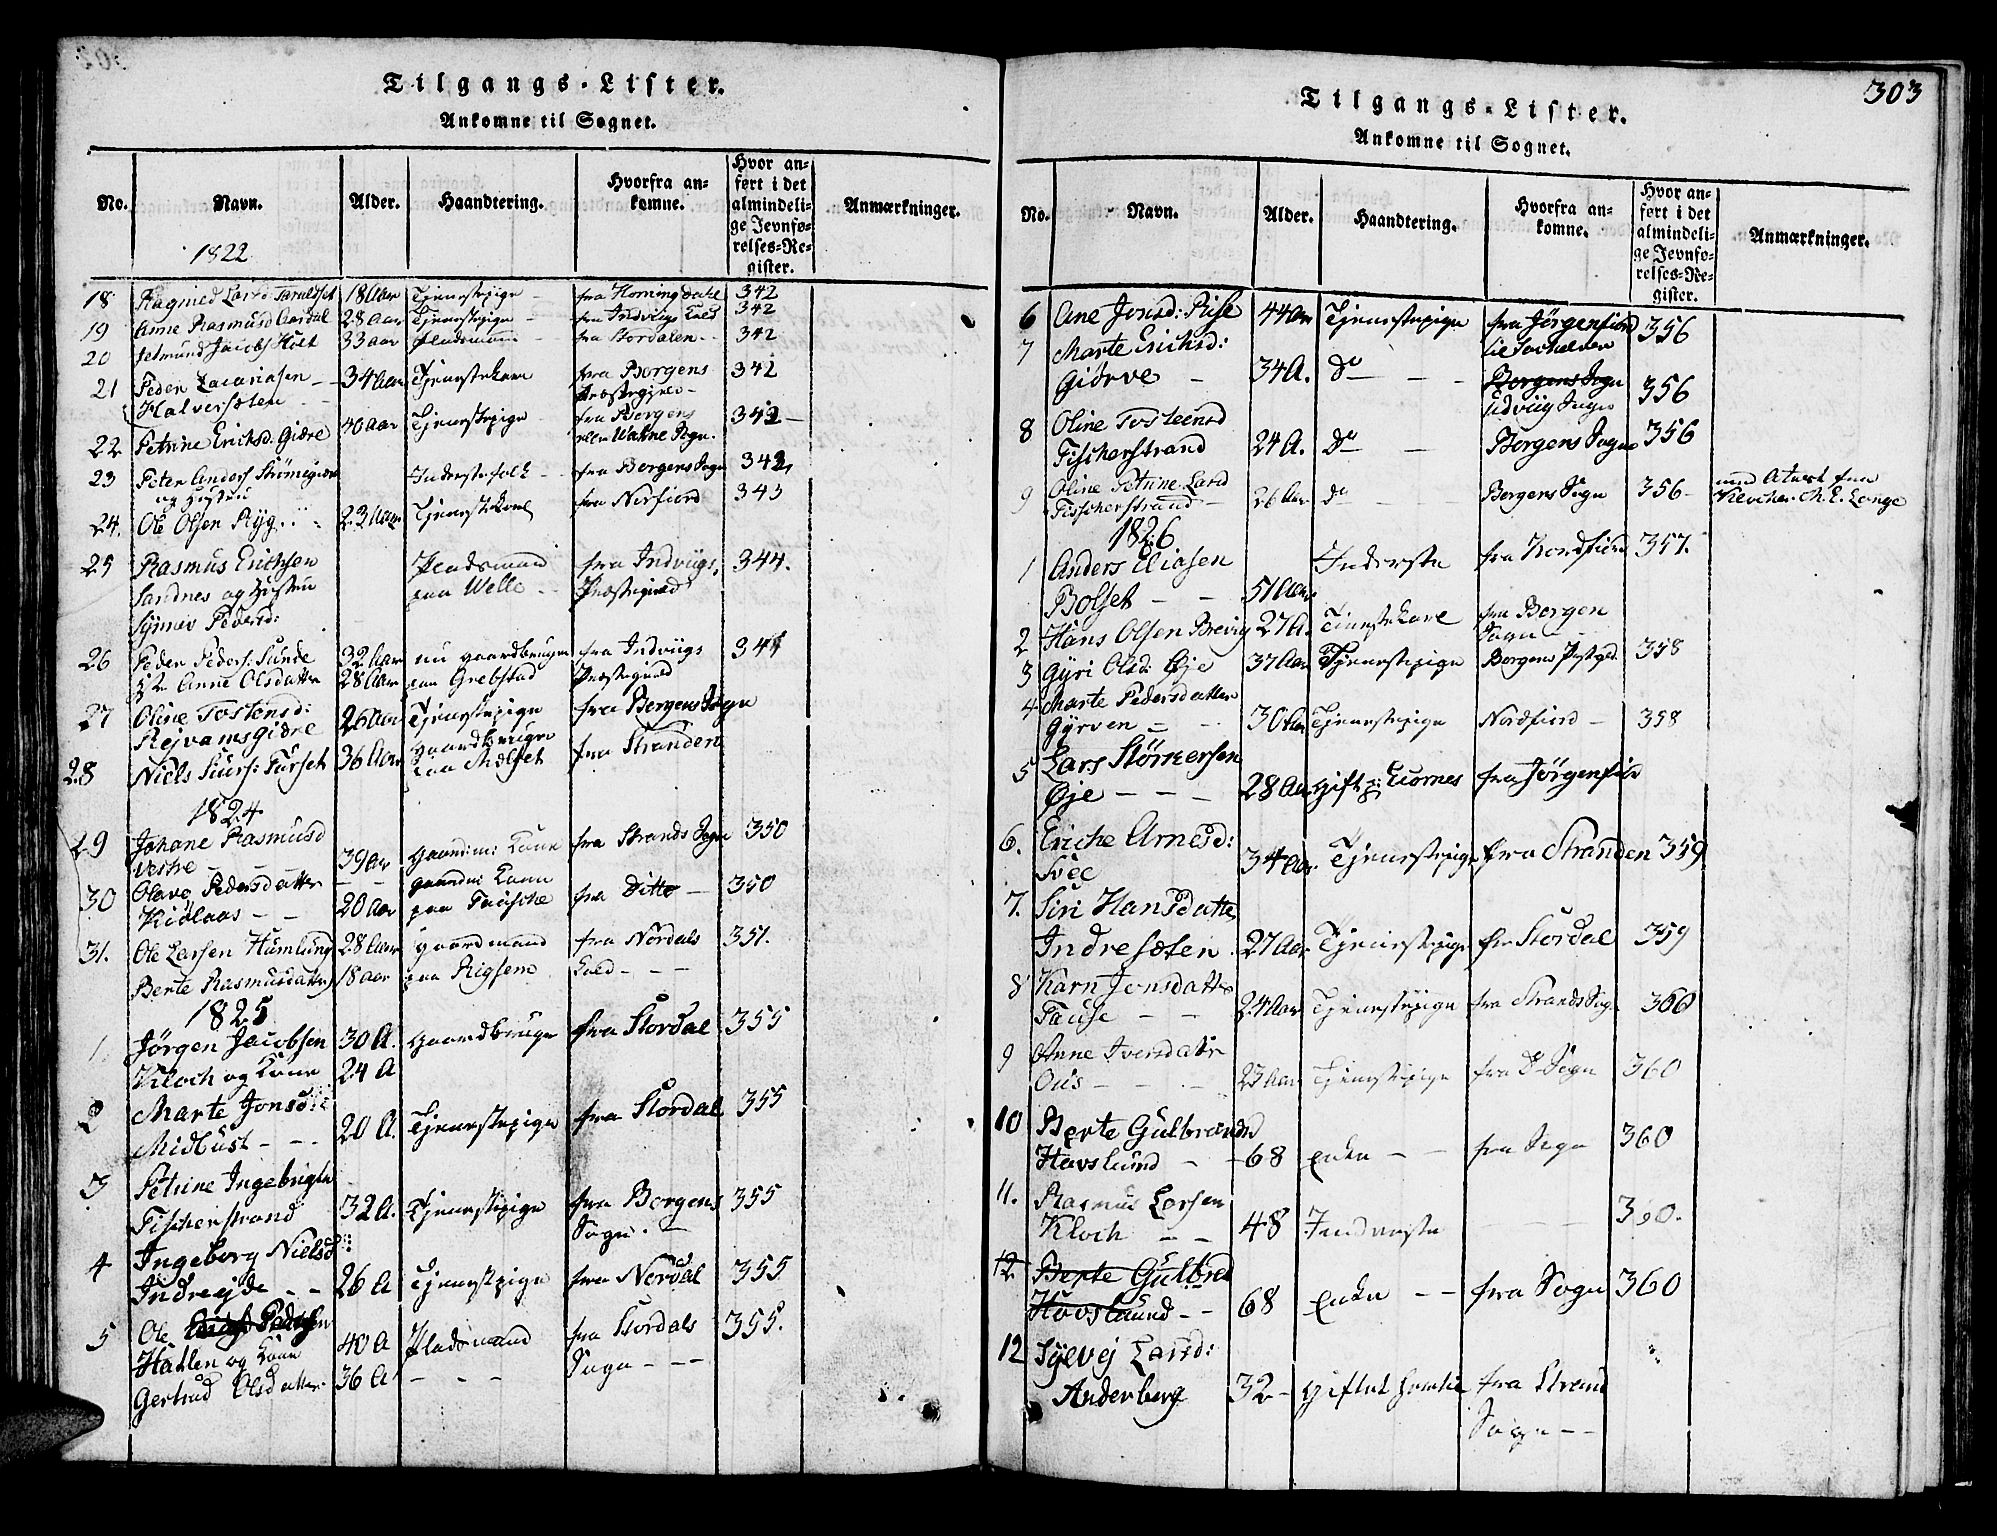 Tilgangs-Lister.
Ankomne til Sognet.
No. Navn. Alder. Haandtering. Hvorfra ankomne. Hvor anført i det almindelige Jevnførelses-Register. Anmærkninger.
1822
18 Ragned Larsd: 18 Aar Tjenestepige fra Horningdahl 342
19 Anne Rasmusd Aardal 28 Aar Tjenestepige fra Indviigs 342
20 Jetmund Jacobs Holt 33 aar pladsmand fra Stordalen 342
21 Peder Zacariasen 34 Aar Tjenestekarl fra Borgens 342
Halvorsten Præstegjeld
22 Petrine Ericksd. Giære 40 Aar Tjenestepige fra Borgens 342
Sogn.
23 Peter Anders Strømegiære Inderstefolk fra Borgens Sogn 342
og Hustru
24. Ole Olsen Ryg 23 Aar Tjenestekarl fra Norfiord 343
25 Rasmus Erichsen Pladsmand fra Indviigs 344.
Sandnes og Hustru paa Welle Præstegield
Synnev Pedersd:
26 Peder Peders: Sunde 32 Aar nu gaardbruger fra Indviigs 344
Anne Olsdatter 28 Aar paa Grebstad Præstegield
27 Oline Tostensd: 26 Aar Tjenestepige fra Borgens Sogn
Rejvamsgiære
28 Niels Siurs: Furset 36 Aar Gaardbruger fra Stranden
paa Mælset
1824
29 Johane Rasmusd 39 Aar Gaardm: Kone fra Strands Sogn 350
Vestre
30 Olave Pedersdatter 20 Aar gaardm: Kone fra Ditto 350
Kidlaas paa
31. Ole Larsen Humlung 28 Aar gaardmand fra Nordals 351.
Berte Rasmusdatter 18 aar paa Rigsem Kald
1825
1 Jørgen Jacobsen 30 A. Gaardbruger fra Stordal 355
Kloch og Kone 24 A
2 Marte Jonsd: 20 A. Tjenestepige fra Stordal 355
Midbust
3 Petrine Ingebrigtsd 32 A. Tjenestepige fra Borgens 355
Fischerstrand Sogn.
4 Ingeborg Nielsd: 26 A Tjenestepige fra Nordal 355
Indreejde
5 Ole 40 A Pladsmand fra Stordals 355.
Hatlen og Kone 36 A Sogn
Gertrud Olsdatter
303
Tilgangs-Lister.
Ankomne til Sognet.
No. Navn. Alder. Haandtering. Hvorfra ankomne. Hvor anført i det almindelige Jevnførelses-Register. Anmærkninger.
6 Ane Jonsd: Riise 44 Aar Tjenestepige fra Jørgenfiord 356
7 Marte Erichsd: 34 A. Do Borgens Sogn 356
Giørve Udviig Sogn
8 Oline Tosteensd 24 A. Do Borgens Sogn 356
Fischerstrand
9 Oline Petrine Larsd 26 Aar do Borgens Sogn 356 med Attest fra
Fisscherstrand
1826
1 Anders Eliasen 51 Aar Inderste fra Nordfiord 357.
Bolset
2 Hans Olsen Brevig 27 A. Tienestekarl fra Borgen
Sogn
3 Gyri Olsd: Øje 37 Aar Tjenestepige Borgens 358
4 Marte Pedersdatter 30 Aar Tjenestepige Nordfiord 358
Gyrven
5 Lars Størkersen 28 Aar Gift p: Liørnes fra Jørgenfiord
Øje
6. Eriche Arnesd: 34 Aar Tjenestepige fra Stranden 359
Svee
7. Siri Hansdatter 27 Aar Tjenestepige fra Stordal 359
Indresæten
8 Karn Jonsdatter 24 Aar Tjenestepige fra Strands Sogn 360
Fause
9 Anne Iversdatr 23 Aar Tjenestepige fra Do Sogn 360
Ous
10 Berte Gulbrandsd 68 Enke fra Sogn 360
Havslund
11. Rasmus Larsen 48 Inderste 360.
Kloch
12 Berte Gulbrd 68 Enke fra Sogn 360
Hovslaund
12 Sylvej Larsd: 32 Giftet fra Strand
Anderberg Sogn